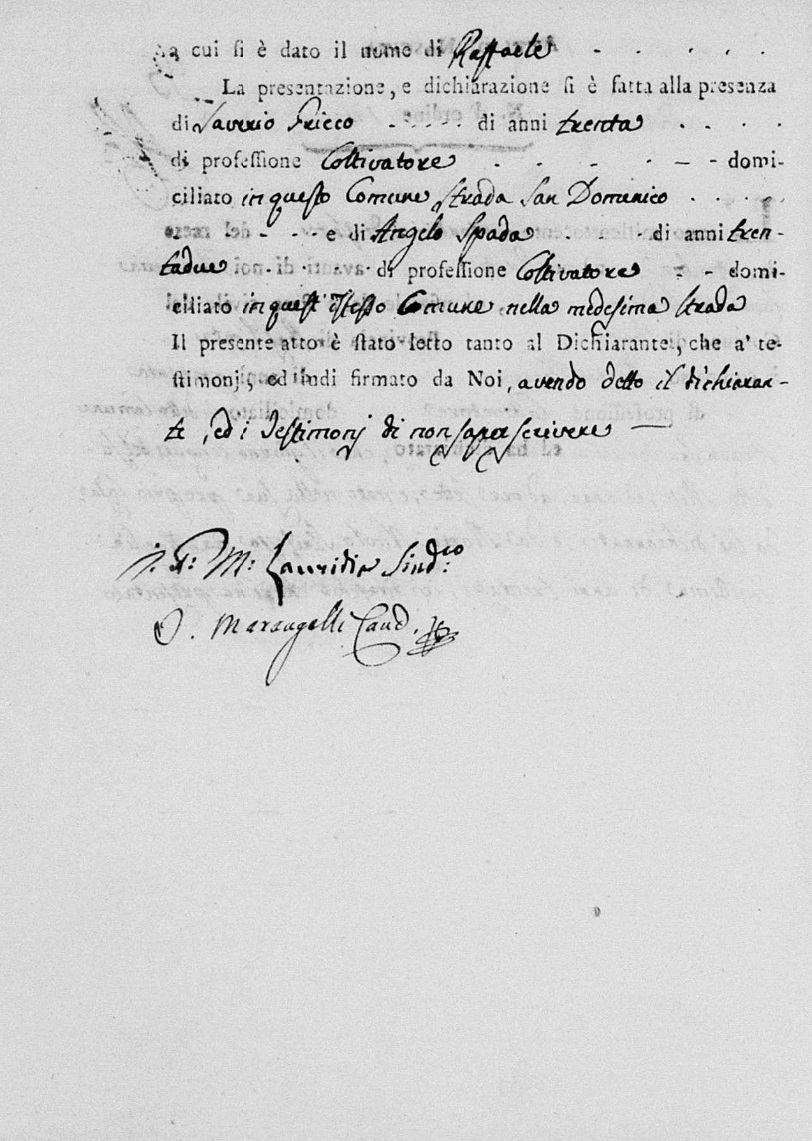 a cui si è dato il nome di Raffaele - . . . .
La presentazione, e dichiarazione si è fatta alla presenza
di Saverio Fricco - . . . . di anni trenta . . . .
di professione Coltivatore - - - - - - - domi-
ciliato in questo Comune Strada San Domenico . . . .
- - - - e di Angelo Spada . . - . di anni tren-
tadue - . . . . di professione Coltivatore - - domi-
ciliato in quest'istesso Comune nella medesima strada
Il presente atto è stato letto tanto al Dichiarante, che a' te-
stimonj, ed indi firmato da Noi, avendo detto il dichiaran-
te, ed i Testimonj di non saper scrivere —
M: Sind:co
Marangelli Canc.